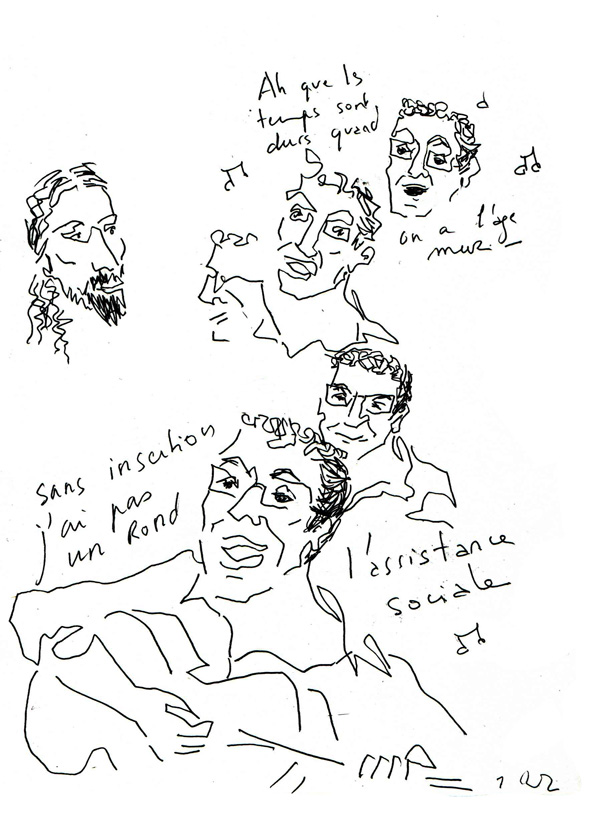 Ah que ls
temps sont
durs quand
on a l'âge
mur
sans insertion
j'ai pas
un Rond
l'assistance
sociale